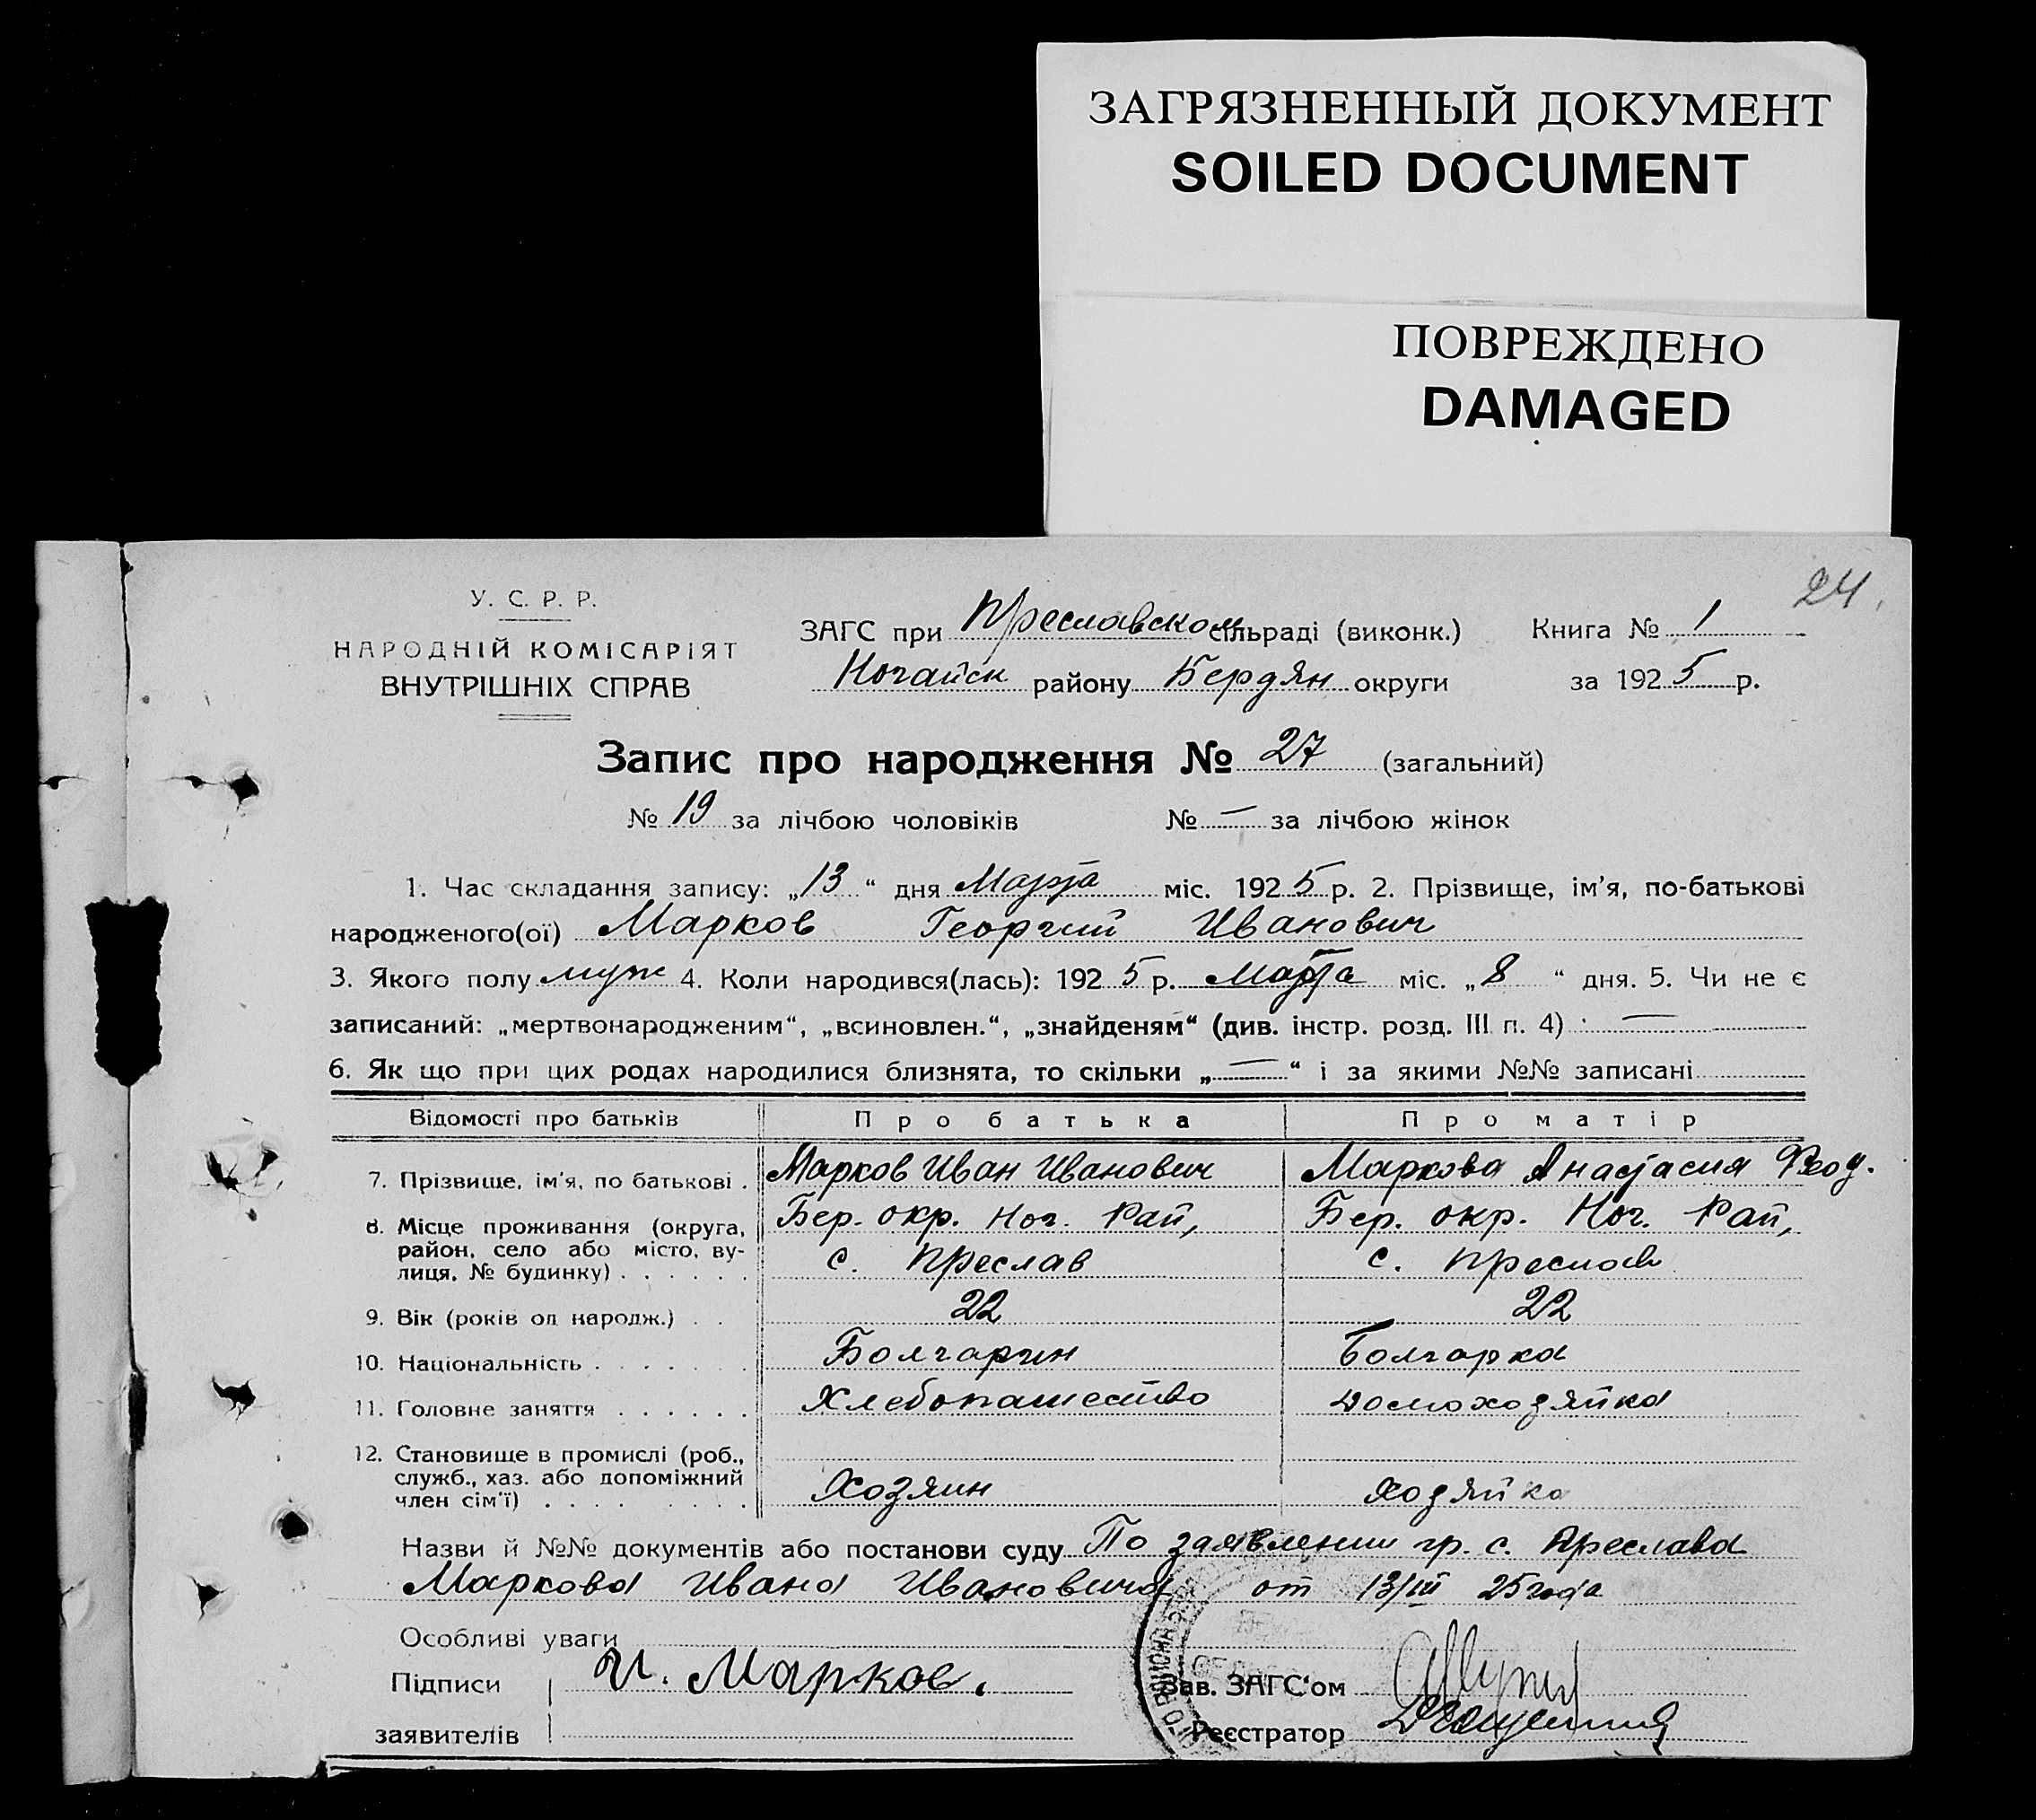 ЗАГРЯЗНЕННЫЙ ДОКУМЕНТ
SOILED DOCUMENT
ПОВРЕЖДЕНО
DAMAGED
24.
У. С. Р. Р.
НАРОДНІЙ КОМІСАРІЯТ
ВНУТРІШНІХ СПРАВ
ЗАГС при Преславском сільраді (виконк.) Книга № 1
Ногайск району Бердян округи за 1925 р.
Запис про народження № 27 (загальний)
№ 19 за лічбою чоловіків № — за лічбою жінок
1. Час складання запису: „13“ дня Марта міс. 1925 р. 2. Прізвище, ім'я, по-батькові
народженого(ої) Марков Георгий Иванович
3. Якого полу муж 4. Коли народився(лась): 1925 р. Марта міс. „8“ дня. 5. Чи не є
записаний: „мертвонародженим“, „всиновлен.“, „знайденям“ (див. інстр. розд. III п. 4) —
6. Як що при цих родах народилися близнята, то скільки „—“ і за якими №№ записані
Відомості про батьків Про батька Про матір
7. Прізвище, ім'я, по батькові . Марков Иван Иванович Маркова Анастасия Феод.
8. Місце проживання (округа, Бер. окр. Ног. Рай, Бер. окр. Ног. Рай,
район, село або місто, ву-
лиця, № будинку) . . . . . . с. Преслав с. Преслав
9. Вік (років од народж.) . . 22 22
10. Національність . . . . . . . Болгарин Болгарка
11. Головне заняття . . . . . . Хлебопашество Домоходяйка
12. Становище в промислі (роб.,
служб., хаз. або допоміжний
член сім'ї) . . . . . . . . Хозяин Ходяйка
Назви й №№ документів або постанови суду По заявлении гр. с. Преслава
Маркова Ивана Ивановича от 13/III 25 года
Особливі уваги
Підписи И. Марков. Зав. ЗАГС'ом
заявителів Реєстратор